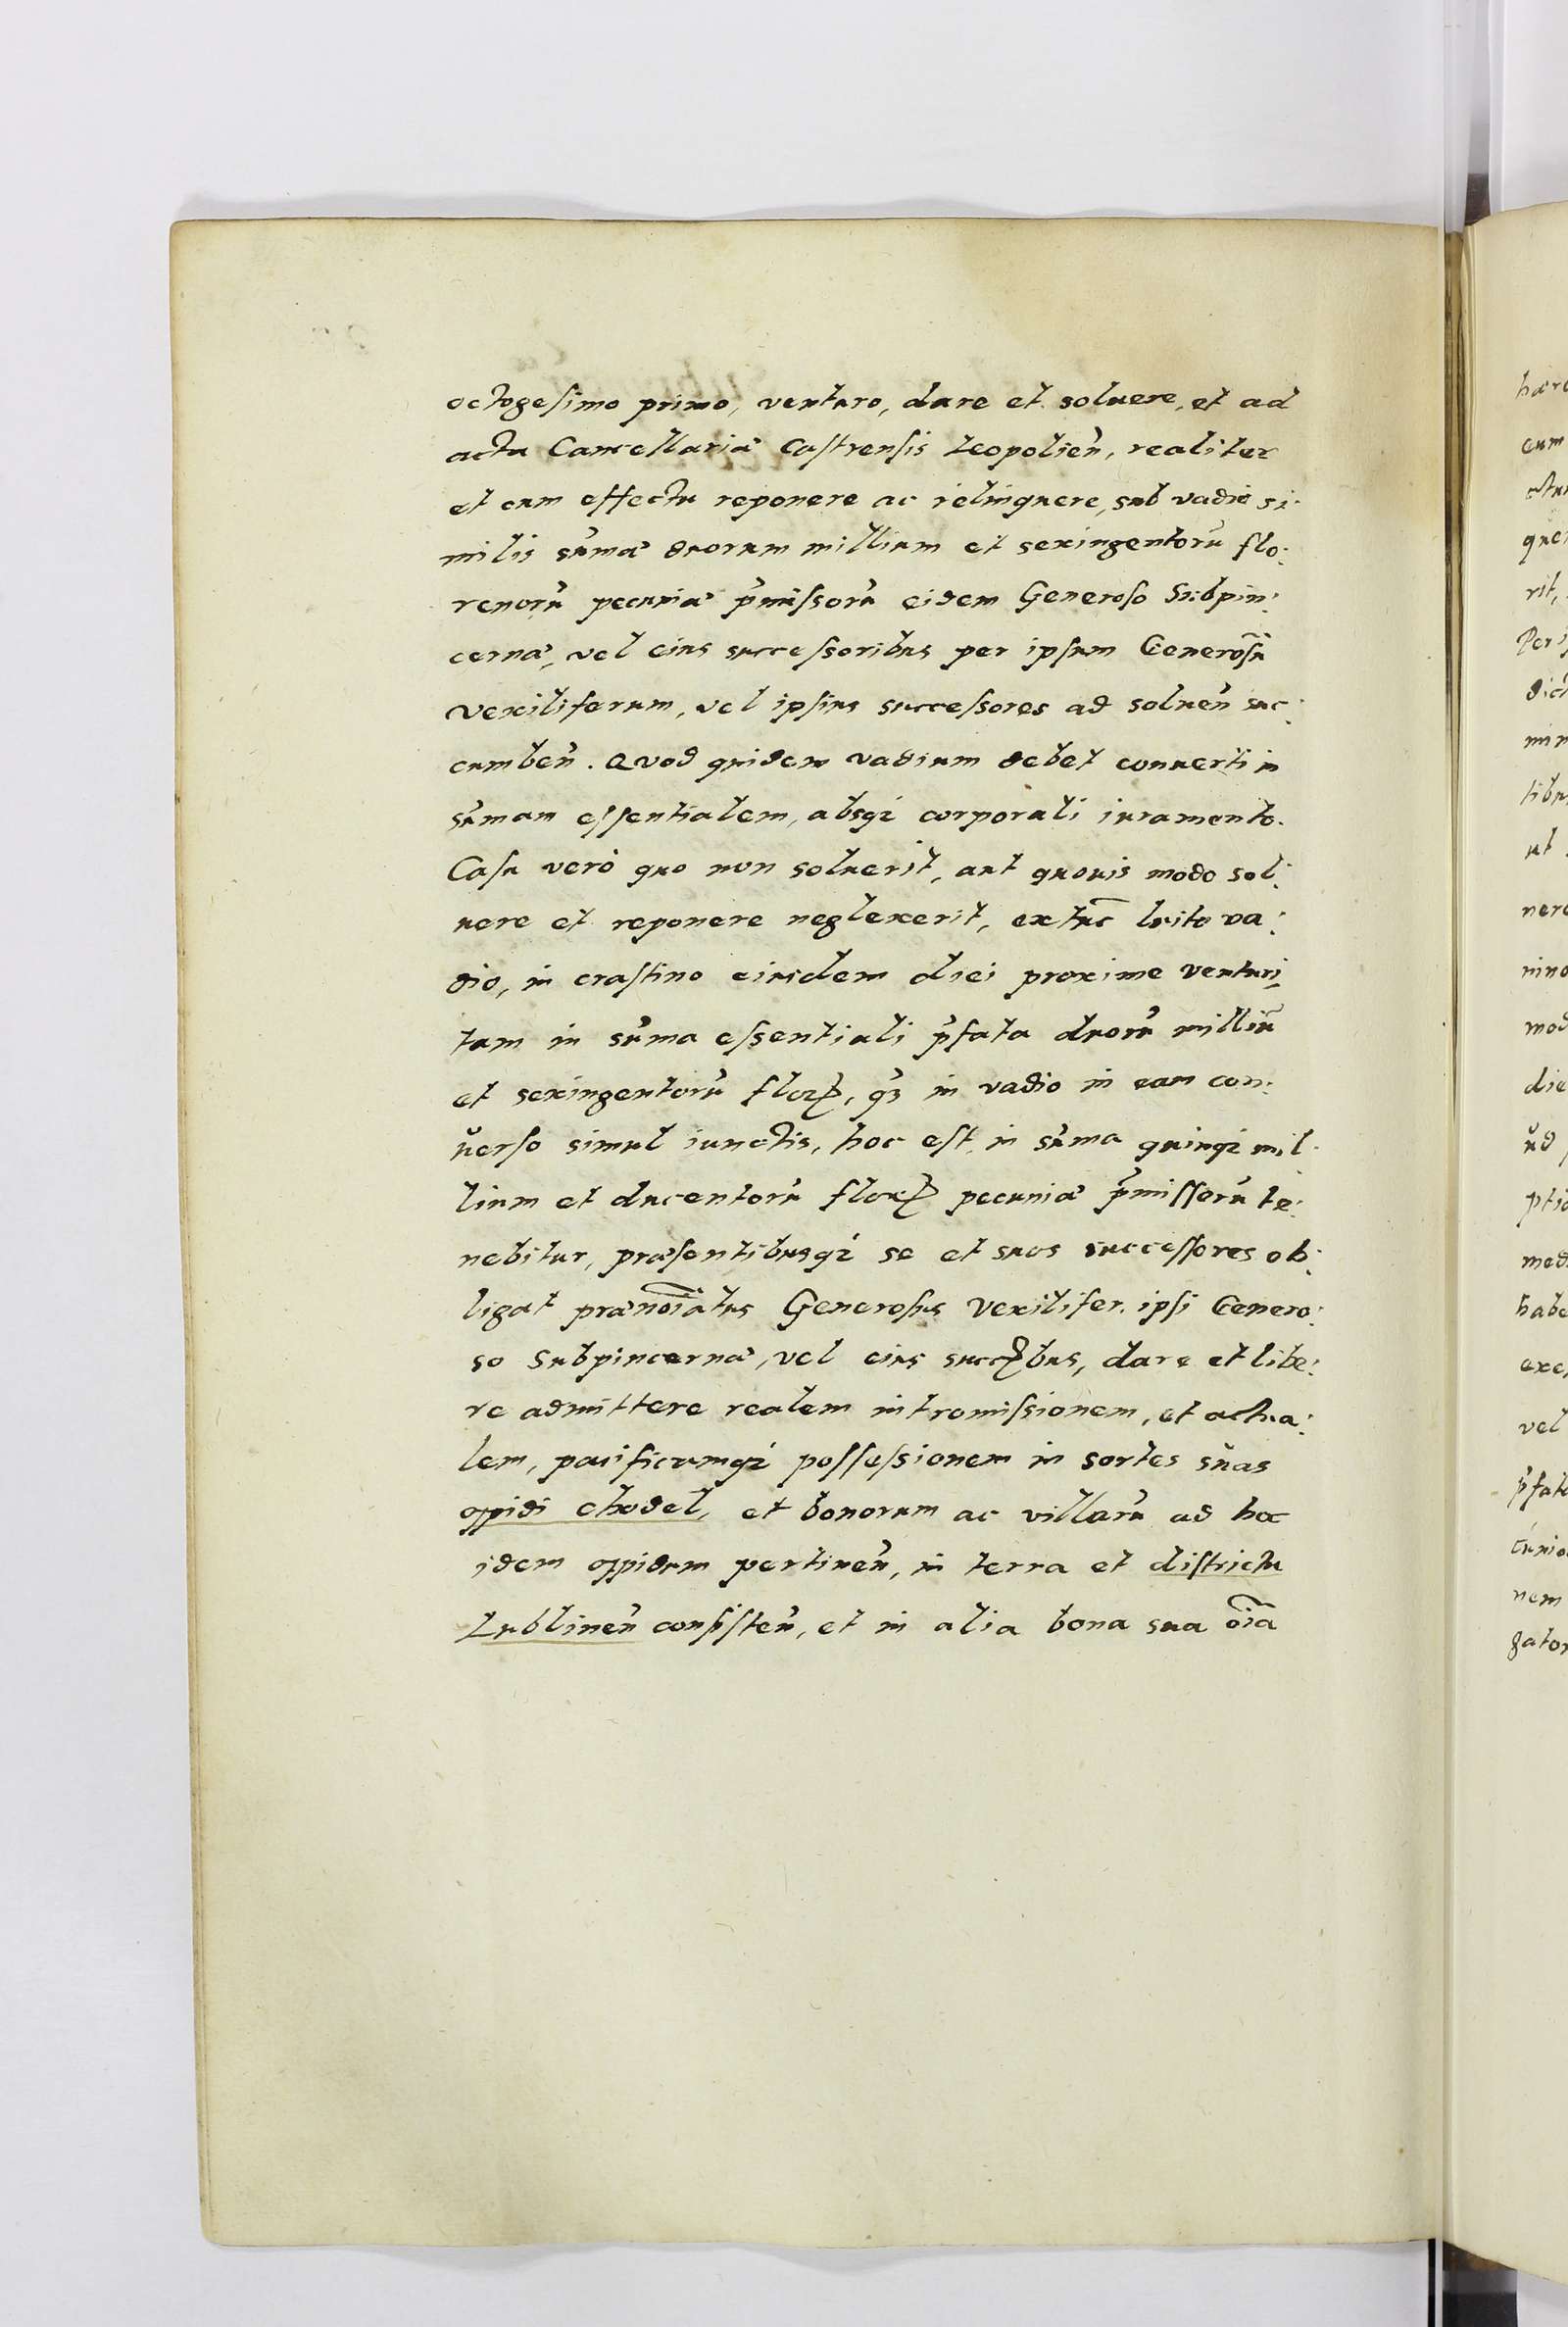 octogesimo primo, venturo, dare et soluere, et ad
acta Cancellariæ Castrensis Leopolieñ, realiter
et cum effectu reponere ac relinquere, sub vadio si:
milis sum̃æ duorum millium et sexingentorũ flo:
renorũ pecuniæ p̃missorũ eidem Generoso Subpin:
cernæ, vel eius successoribus per ipsum Generosũ
Vexiliferum, vel ipsius successores ad soluen̄ suc:
cumben̄. Quod quidem vadium debet conuerti in
sum̃am essentialem, absq; corporali iuramento.
Casu verò quo non soluerit, aut quouis modo sol:
uere et reponere neglexerit, extuc̃ luito va:
dio, in crastino eiusdem diei proxime venturi,
tam in sum̃a essentiali p̃fata duorũ milliũ
et sexingentorũ floꝝ, q̃ȝ in vadio in eam con:
uerso simul iunctis, hoc est, in sum̃a quinq; mil:
lium et ducentorũ floꝝ pecuniæ p̃missorũ te:
nebitur, præsentibusq; se et suos successores ob:
ligat prænoĩatus Generosus Vexilifer. ipsi Genero:
so Subpincernæ, vel eius succꝝbus, dare et libe:
re admittere realem intromissionem, et actua:
lem, pacificamq; possessionem in sortes suas
oppidi Chodel, et bonorum ac villarũ ad hoc
idem oppidum pertinen̄, in terra et districtu
Lublinen̄ consisten̄, et in alia bona sua oĩa